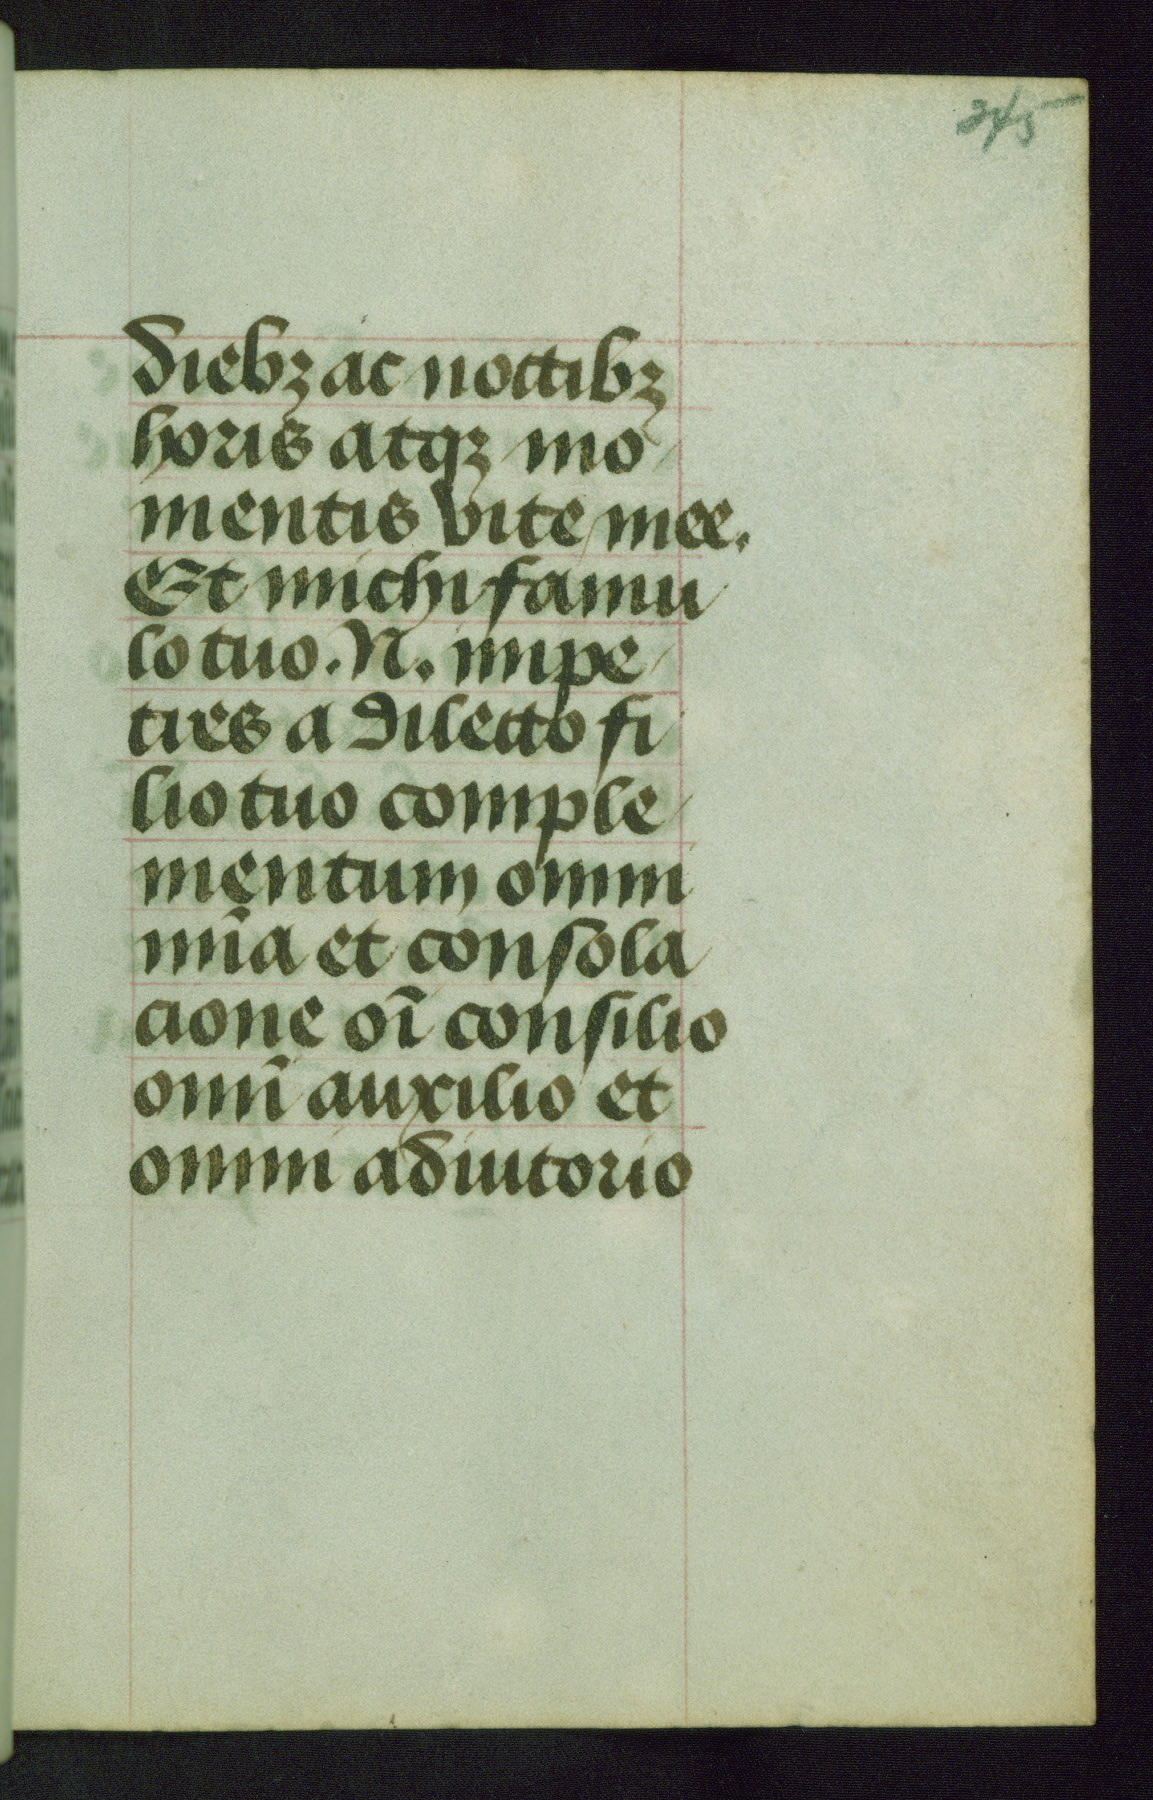 345
diebꝫ ac noctibꝫ
horis atqꝫ mo
mentis vite mee.
Et michi famu
lo tuo. N. impe
tres a dilecto fi
lio tuo comple
mentum omni
mīa et consola
cione oī consilio
omī auxilio et
omni adiutorio